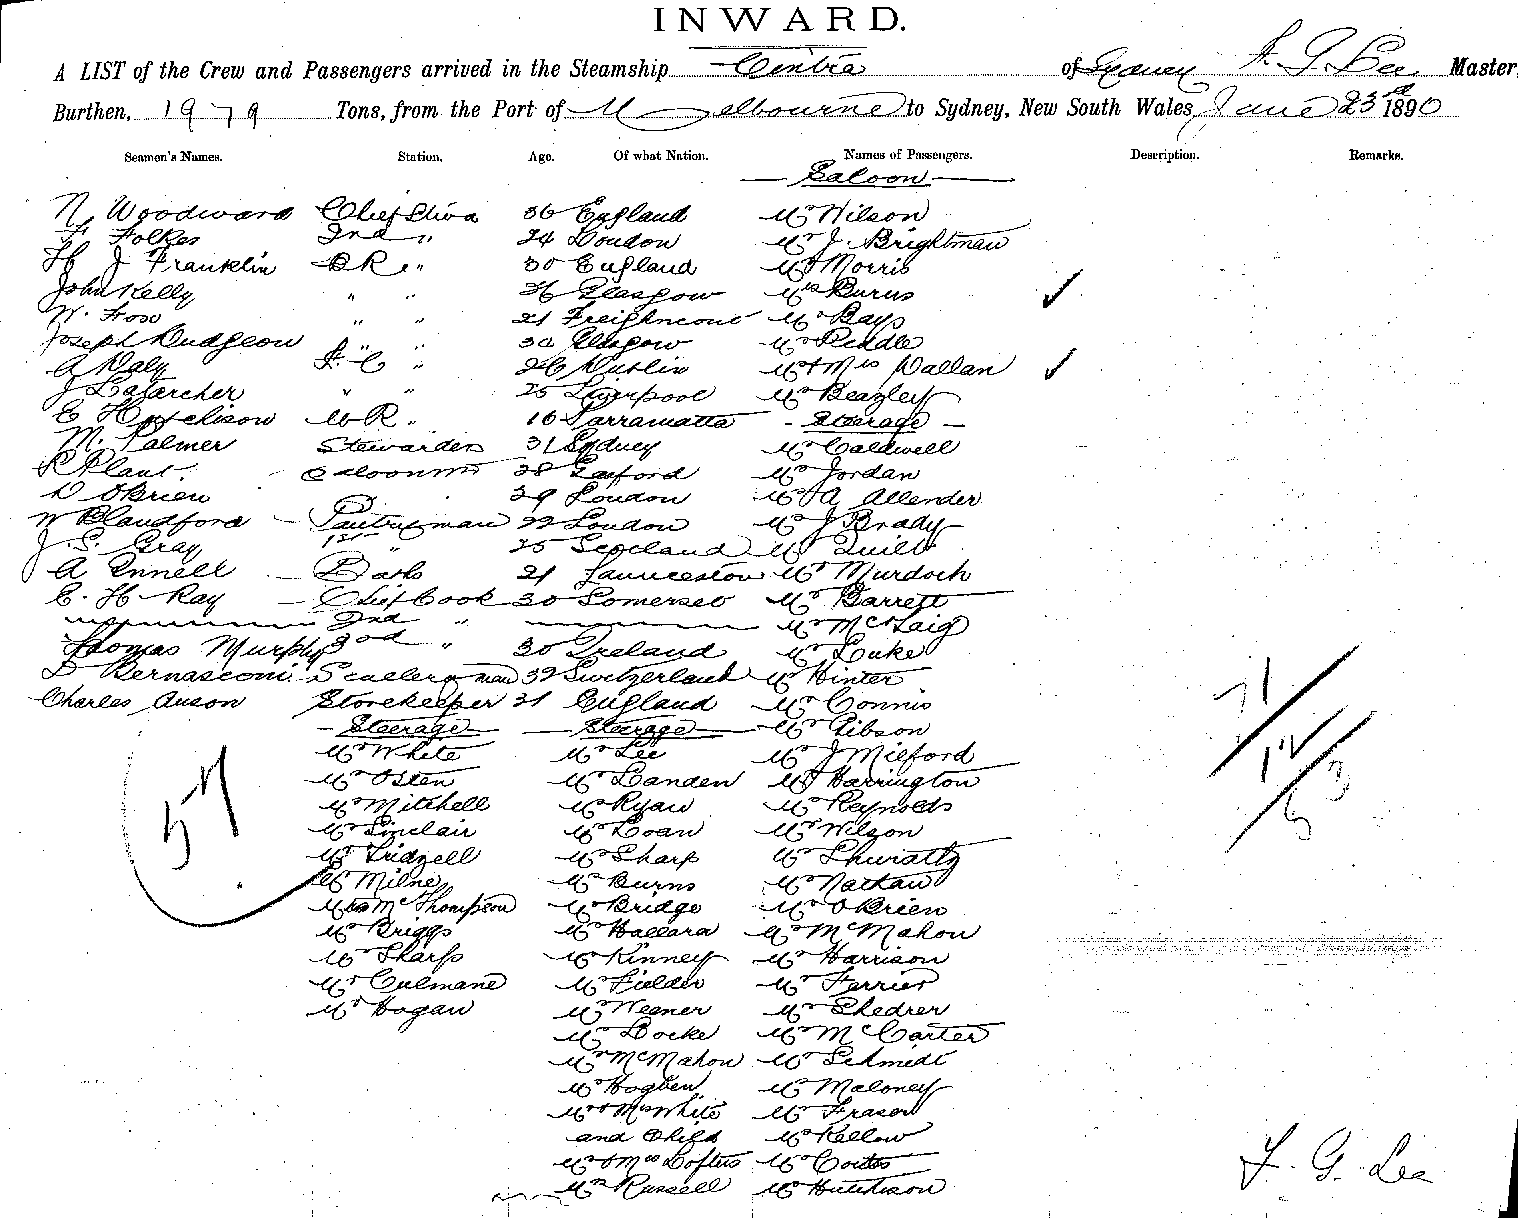 INWARD.
A LIST of the Crew and Passengers arrived in the Steamship Cintra of Sydney F. G. Lee Master,
Burthen, 1979 Tons, from the Port of Melbourne to Sydney, New South Wales, June 23rd 1890
Seamen's Names. Station. Age. Of what Nation. Names of Passengers. Description. Remarks.
Saloon
N. Woodward Chief Stwd 36 England Mr Wilson
F. Folkes 2nd " 24 London Mr J. Brightman
H J Franklin B R " 30 England Mr Morris
John Kelly " " 26 Glasgow Mrs Burns
W. Fox " " 21 Mr Bays
Joseph Dudgeon " " 30 Glasgow Mr Riddle
A Daly F. C " 26 Dublin Mr & Mrs Dallan
J Latarcher " " 25 Liverpool Mr Beazley
E Hutchison W R " 16 Parramatta Steerage
M. Palmer Stewardess 31 Sydney Mr Caldwell
R Plant 28 Mr Jordan
D OBrien 29 London Mr A Allender
W Blandford Pantryman 22 London Mr J Brady
J. S. Gray 1st " 25 Scotland Mr Quilt
A Ennell Baths 21 Launceston Mr Murdoch
E. H. Ray Chief Cook 30 Somerset Mr Barrett
2nd " Mr McHaig
Thomas Murphy 3rd " 30 Ireland Mr Luke
D Bernasconi Sculleryman 32 Switzerland Mr Hinter
Charles Anson Storekeeper 21 England Mr Connis
Steerage Steerage Mr Gibson
Mr White Mr Lee Mr J Milford
Mr Osten Mr Landen Mr Harrington
Mr Mitchell Mr Ryan Mr Reynolds
Mr Sinclair Mr Loan Mr Wilson
Mr Tridgell Mr Sharp
Mr Milne Mr Burns Mr Nathan
McThompson Mr Bridge Mr OBrien
Mr Briggs Mr Hallara Mr McMahon
Mr Sharp Mr Kinney Mr Harrison
Mr Culmane Mr Fielder Mr Ferrier
Mr Hogan Mr Weener Mr Shedrer
Mr Locke Mr McCarter
Mr McMahon Mr Schmidt
Mr Hogben Mr Maloney
Mr & Mrs White Mr Fraser
and Child Mr Kellow
Mr & Mrs Loftus Mr Coates
Mr Russell Mr Hutchison
57
71
12
53
F. G. Lee